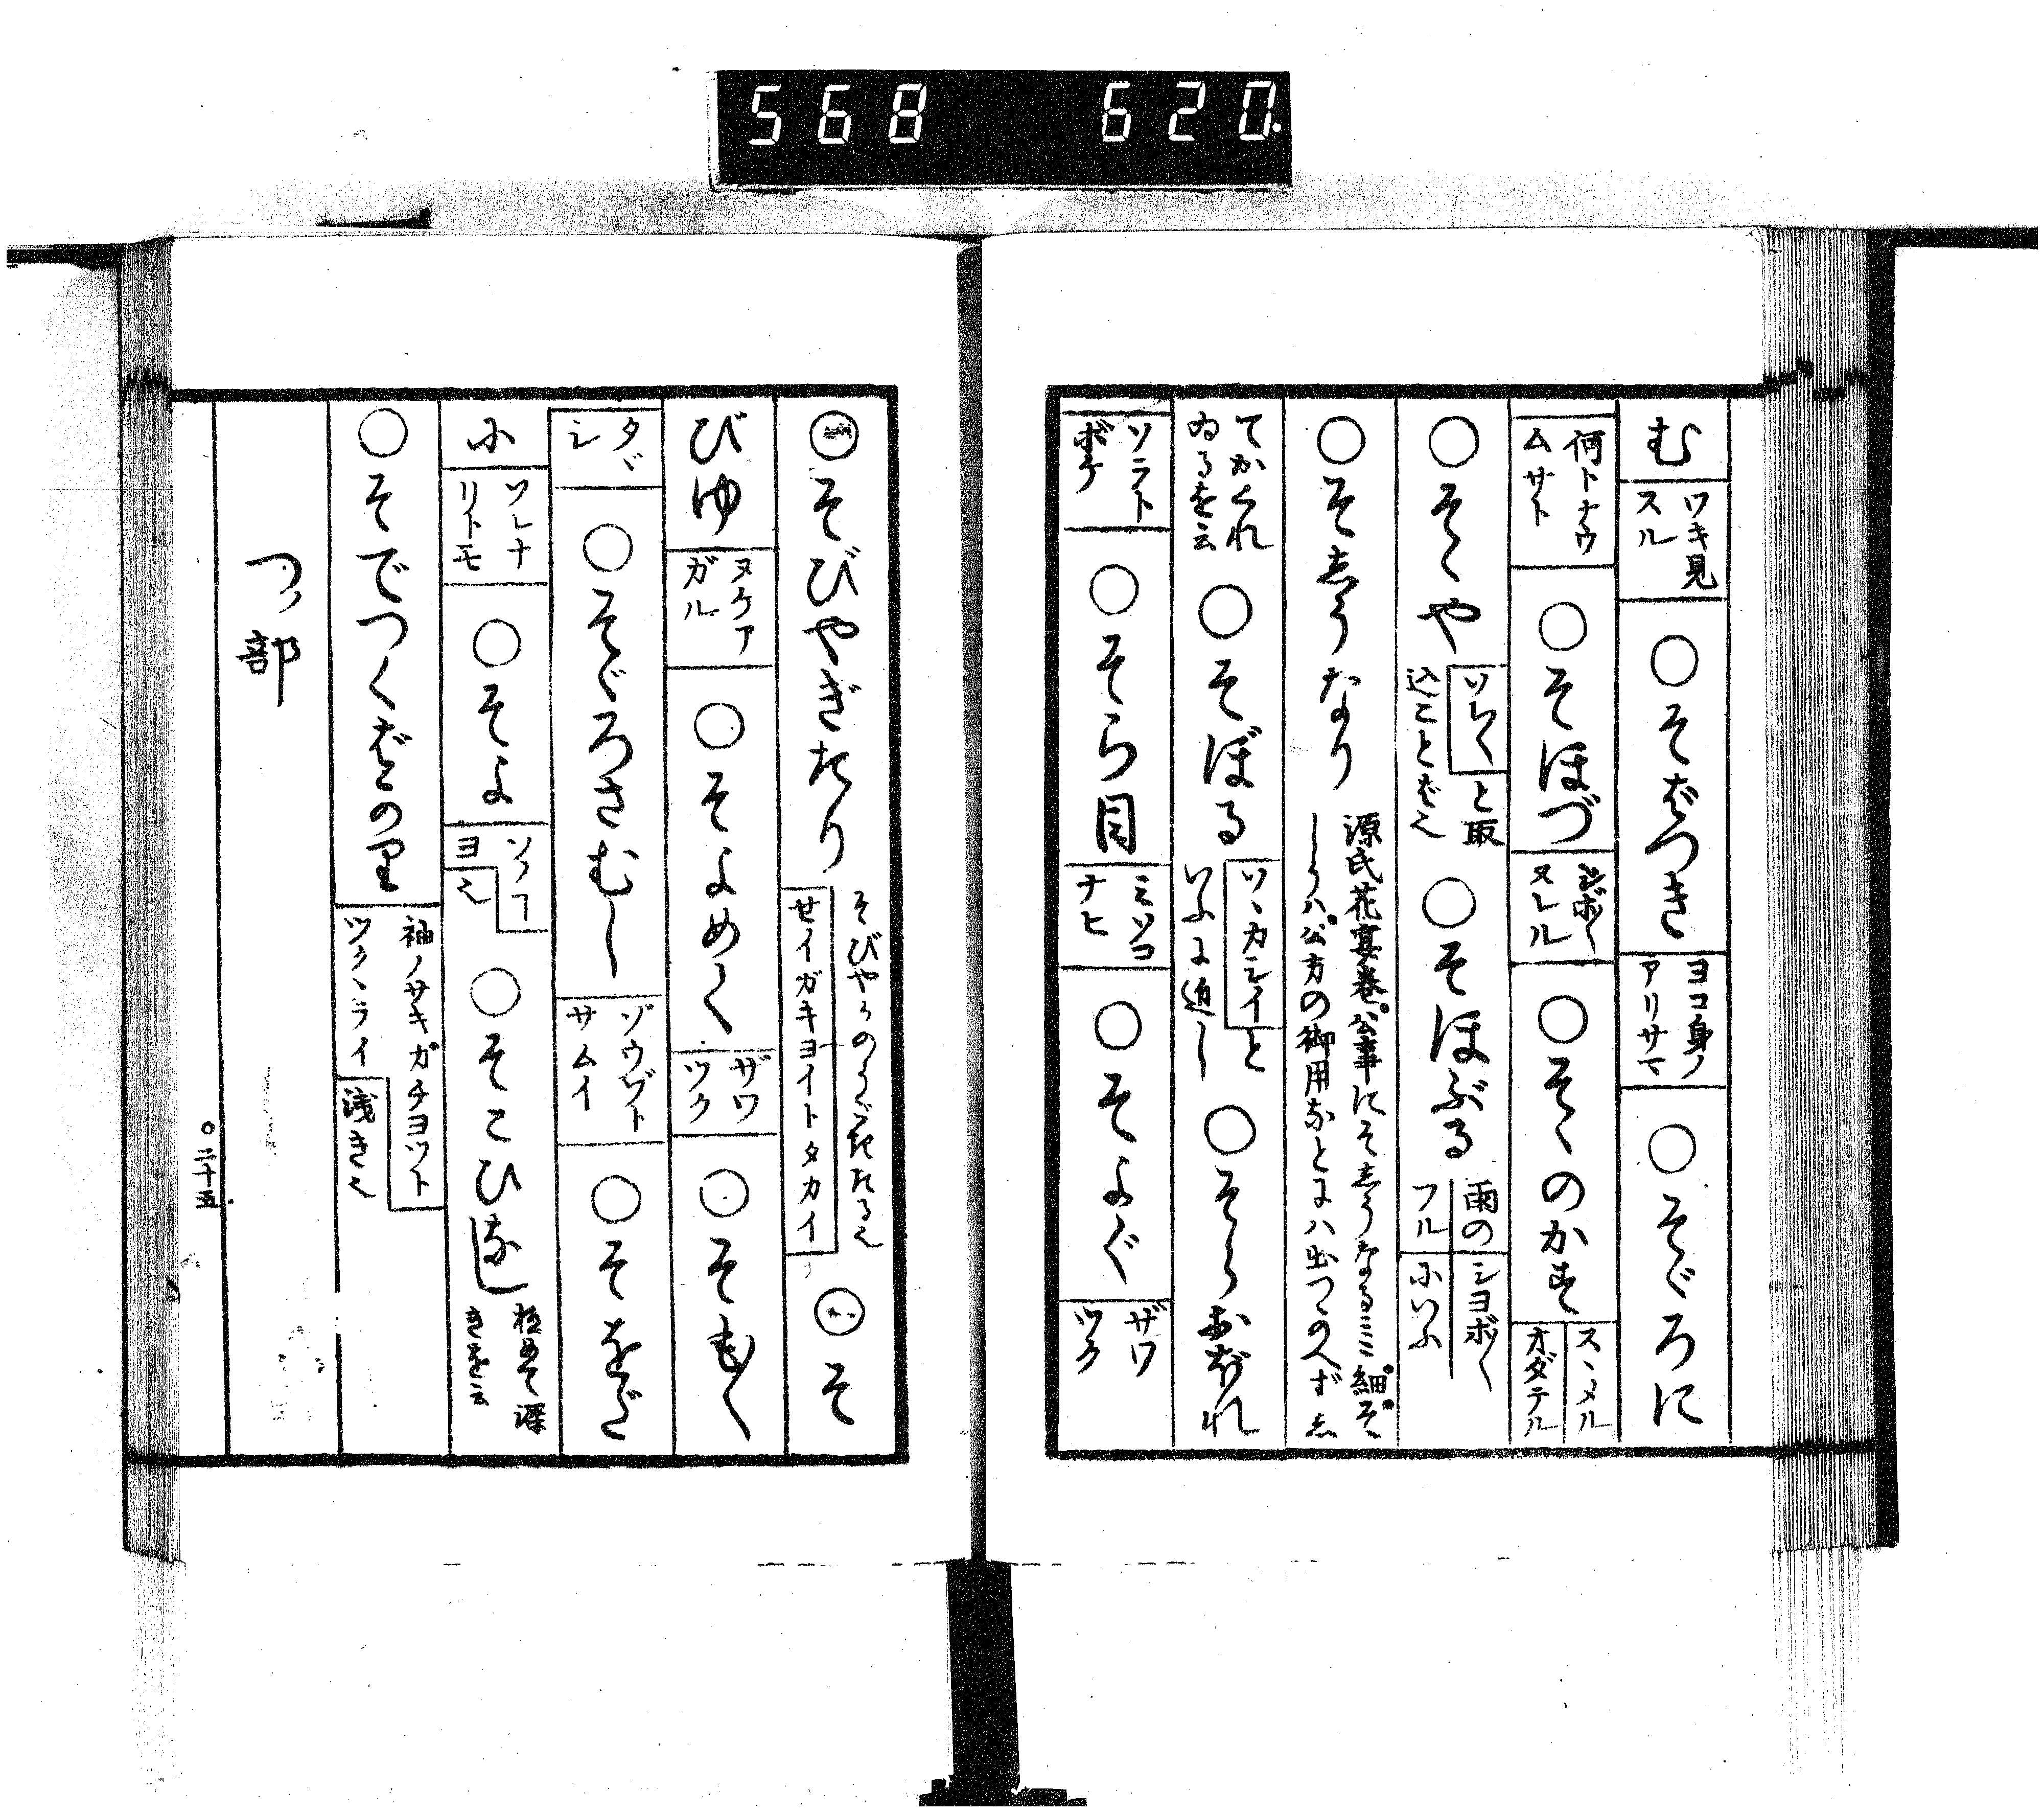 568 620.
む ワキ見スル ○そばつき ヨコ身ノアリサマ ○そゞろに
何トナウムサト ○そほづ ヌレル ○そゝのかす スヽメルオダテル
○そゝや ソレ〱と取込ことば也 ○そほぶる 雨のシヨボ〱フル小いふ
○そしうなり 源氏花宴巻公事にそしうなる 細そしうハ公方の御用などにハ出つかへずし
てかくれゐるを云 ○そぼる ソヽカシイといふに近し ○そらおぼれ
ソラトボケ ○そら目 ミソコナヒ ○そよぐ ザワツク
○そびやぎたり そびやかのうごきたる也 セイガキヨイトタカイ ○そ
びゆ ヌケアガル ○そよめく ザワツク ○そむく
タヾシ ○そゞろさむし ゾウゾトサムイ ○そをだ
に ソレナリトモ ○そよ ソノヿヨ也 ○そこひなし 極めて深きを云
○そでつくばの里 袖ノサキガチヨツトツクヽライ 浅き也
つノ部
○二十五